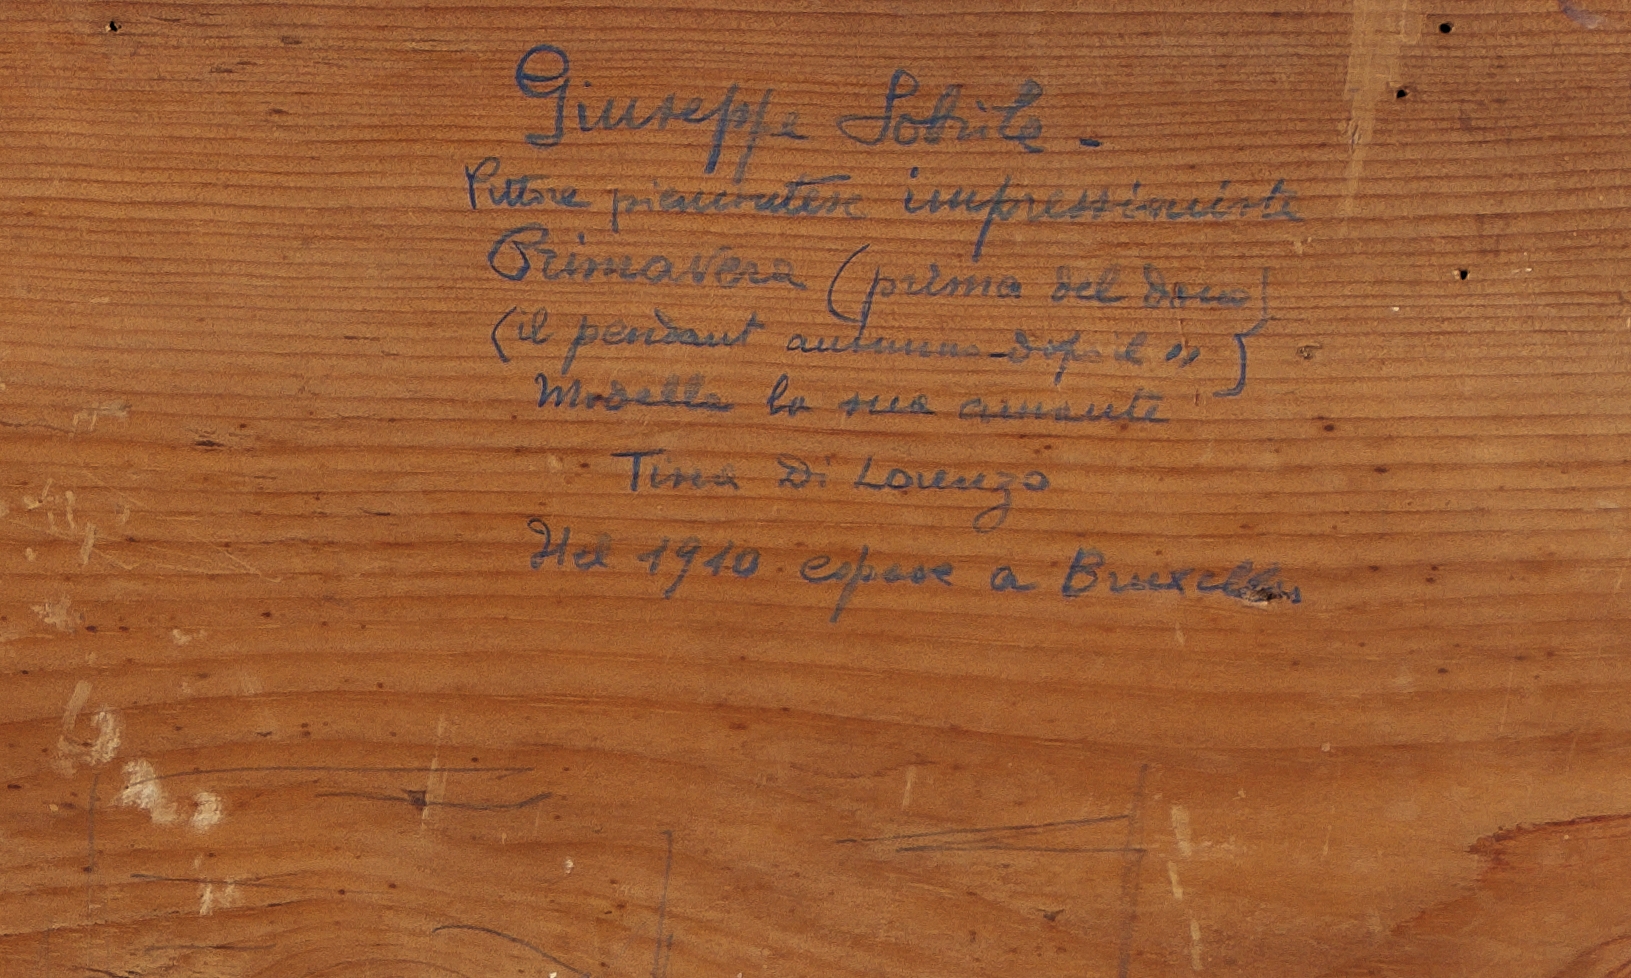 Giuseppe Sobrile -
Pittore piemontese impressionista
Primavera (prima del dono)
(il pendant autunno - dopo il ")
Modella la sua amante
Tina Di Lorenzo
Nel 1910 espose a Bruxelles